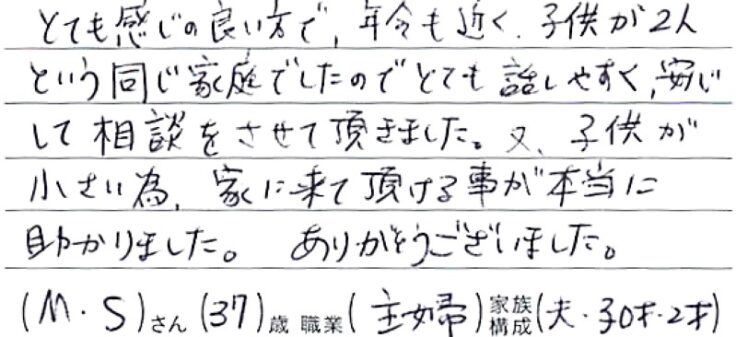 とても感じの良い方で、年令も近く、子供が2人
という同じ家庭でしたのでとても話しやすく、安心
して相談をさせて頂きました。又、子供が
小さい為、家に来て頂ける事が本当に
助かりました。 ありがとうございました。
(M・S)さん(37)歳 職業(主婦)家族構成(夫・子0才・2才)